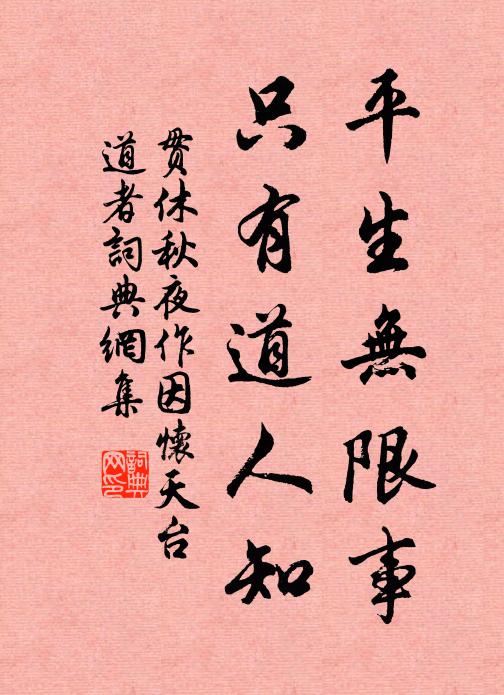 平生無限事
只有道人知
貫休秋夜作因懷天台
道者詞典網集
詞典
网印